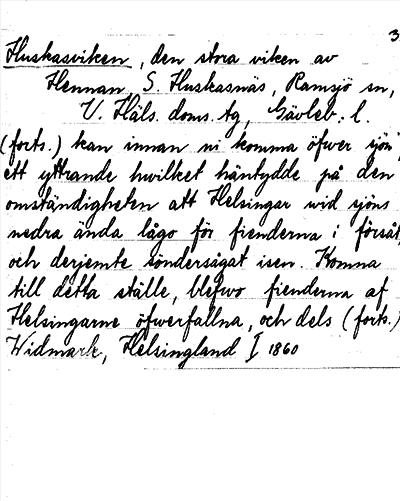 3
Huskasviken, den stora viken av
Hennan, S. Huskasnäs, Ramsjö sn,
V. Häls. doms. tg, Gävleb. l.
(forts.) kan innan ni komma öfwer sjön",
ett yttrande hwilket häntydde på den
omständigheten att Helsingar wid sjöns
nedra ända lågo för fienderna i försåt,
och derjemte söndersågat isen. Komna
till detta ställe, blefwo fienderna af
Helsingarne öfwerfallna, och dels (forts.)
Widmark, Helsingland I 1860